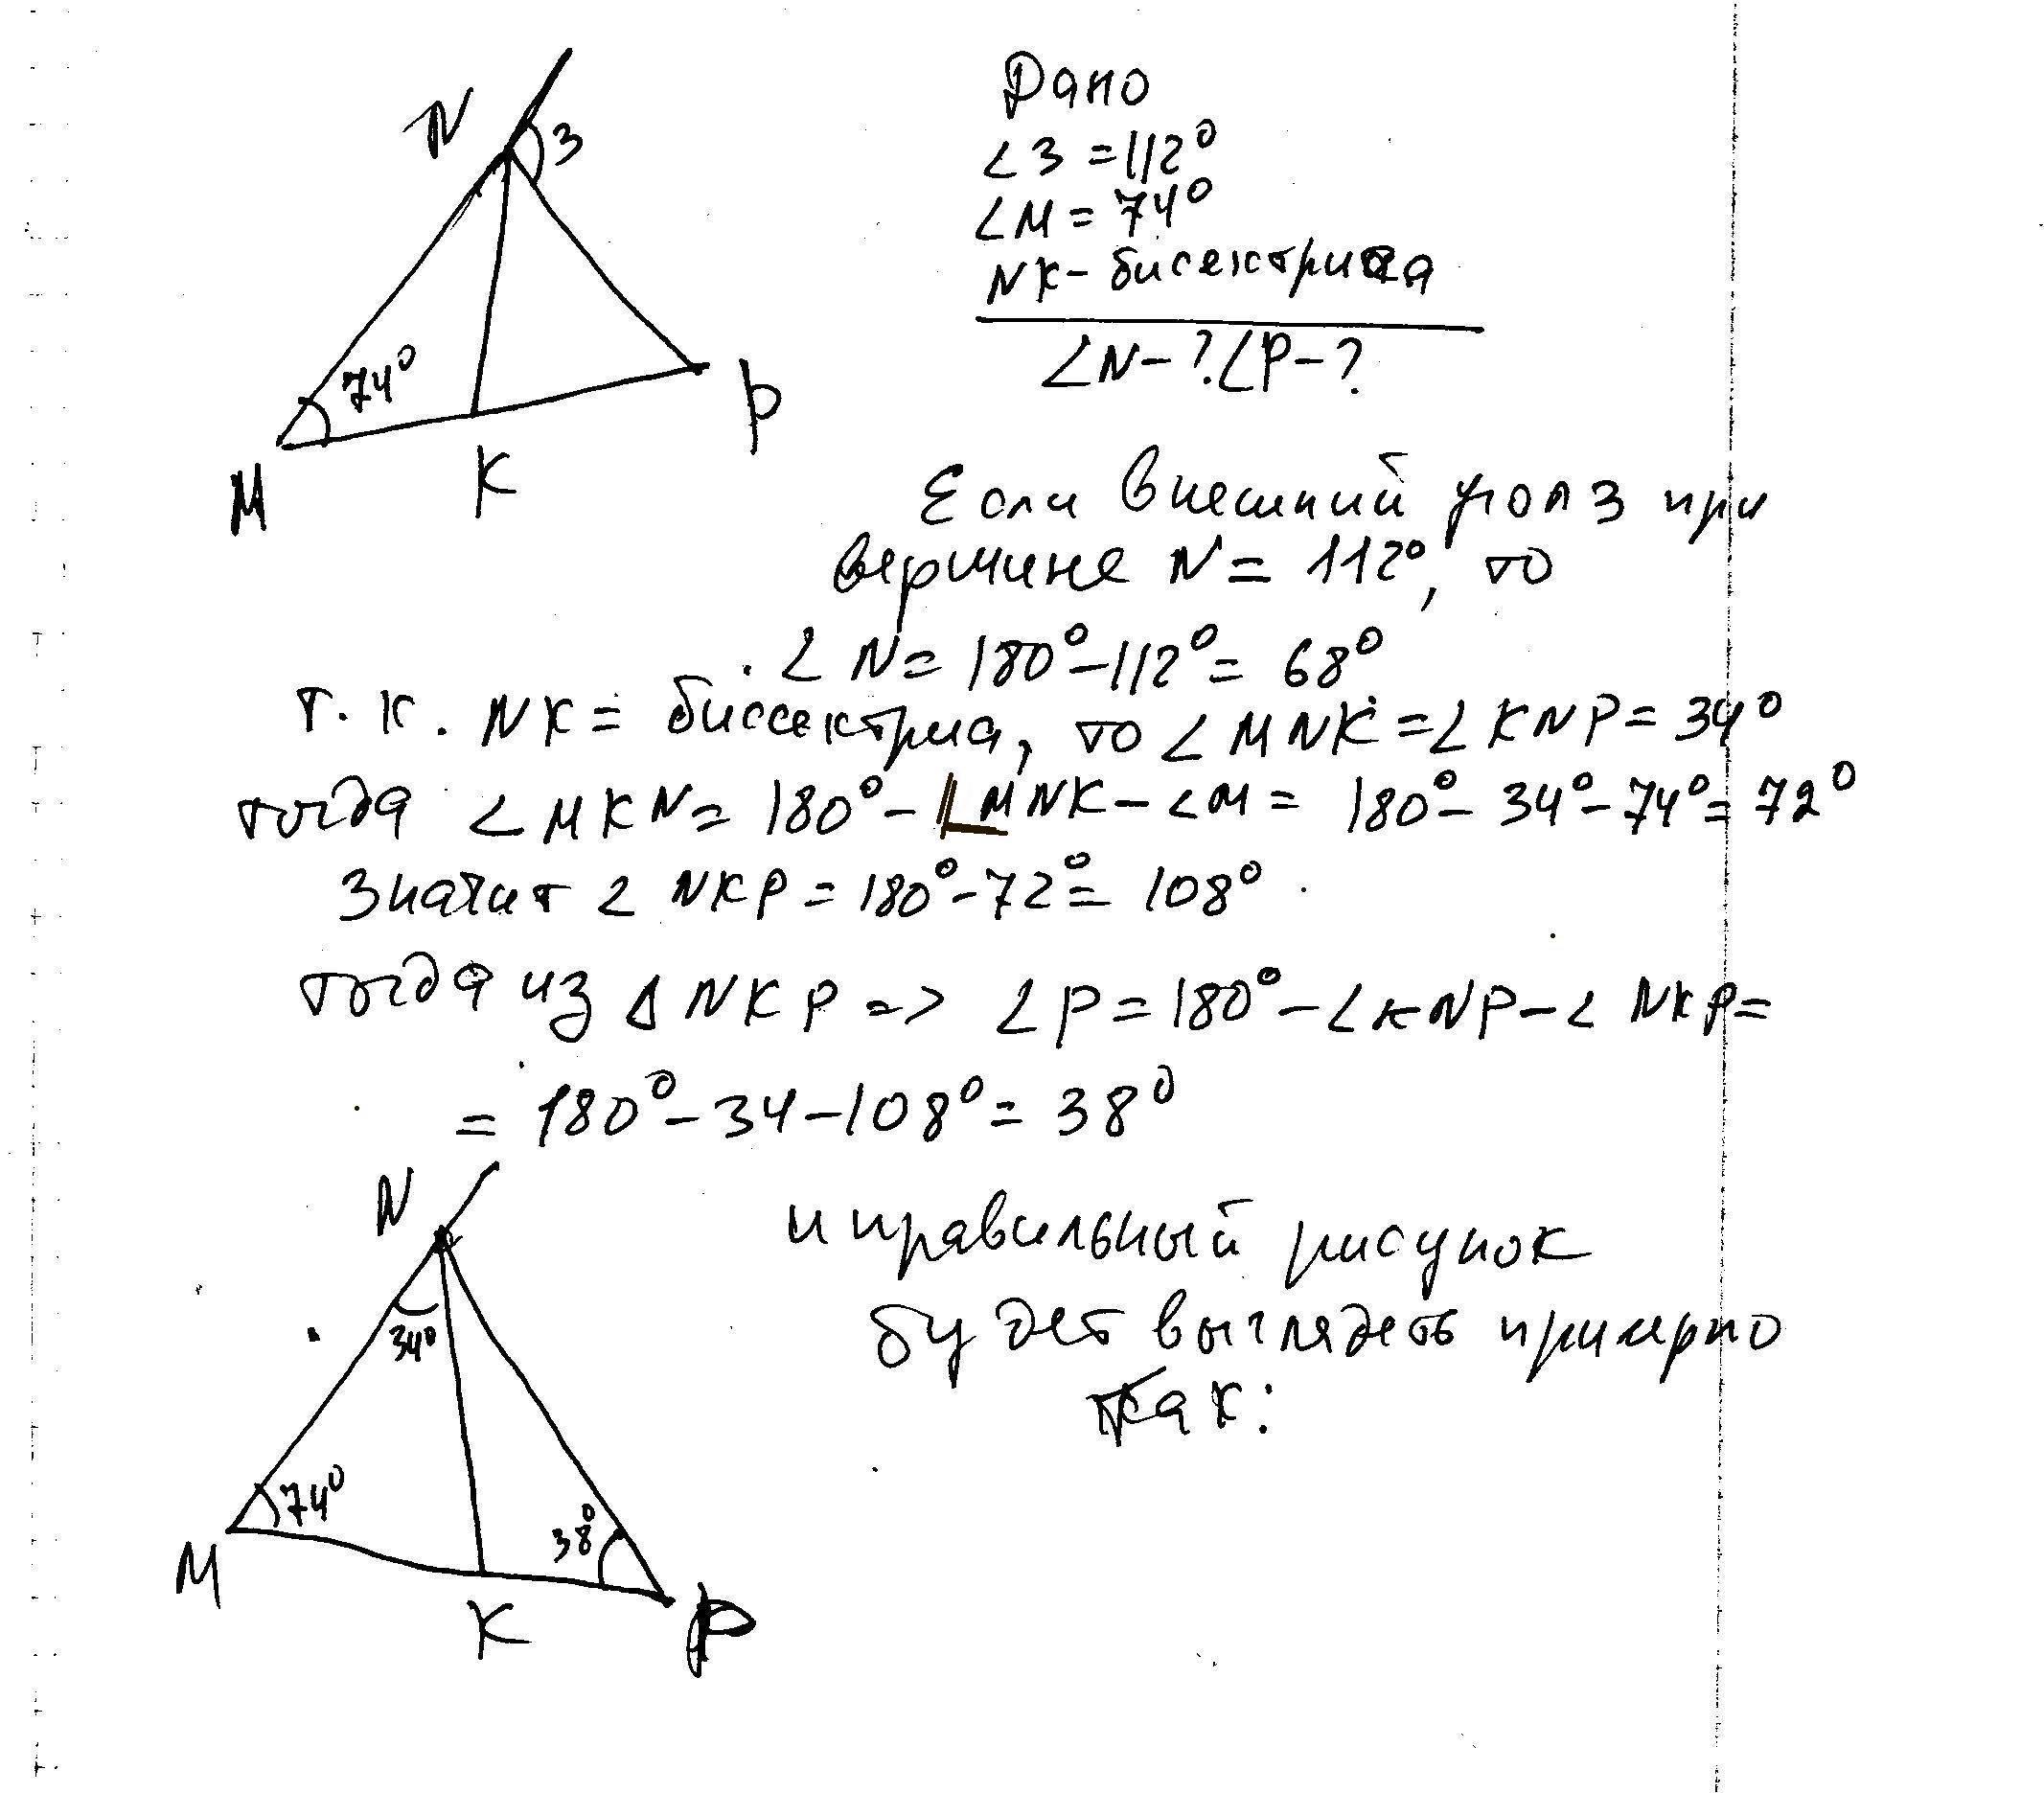 N
3
74°
M
K
P
Дано
∠3 = 112°
∠M = 74°
NK - бисектриса
∠N - ? ∠P - ?
Если внешний угол 3 при
вершине N = 112°, то
∠N = 180° - 112° = 68°
т.к. NK = биссектриса, то ∠MNK = ∠KNP = 34°
тогда ∠MKN = 180° - ∠MNK - ∠M = 180° - 34° - 74° = 72°
Значит ∠NKP = 180° - 72° = 108°
тогда из ΔNKP => ∠P = 180° - ∠KNP - ∠NKP =
= 180° - 34 - 108° = 38°
и правильный рисунок
будет выглядеть примерно
так:
N
34°
74°
38°
M
K
P